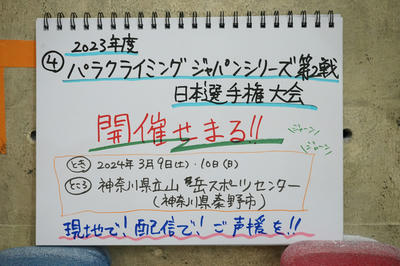 2023年度
④パラクライミングジャパンシリーズ第2戦
日本選手権大会
開催せまる!!
ジャーン
ジャーン
とき 2024年3月9日(土)・10日(日)
ところ 神奈川県立山岳スポーツセンター
(神奈川県秦野市)
現地で!配信で!ご声援を!!